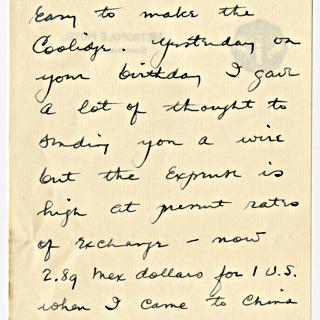 Easy to make the
Coolidge. Yesterday on
your birthday I gave
a lot of thought to
sending you a wire
but the expense is
high at present rates
of exchange – now
2.89 Mex dollars for 1 U.S.
when I came to China
METROPOLE HOTEL